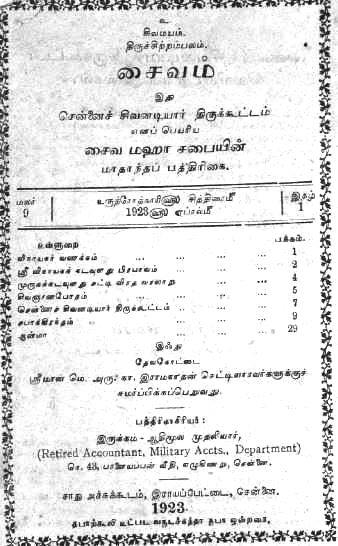 உ
சிவமயம்.
திருச்சிற்றம்பலம்.
சைவம்
இது
சென்னைச் சிவனடியார் திருக்கூட்டம்
எனப் பெயரிய
சைவ மஹா சபையின்
மாதாந்தப் பத்திரிகை.
மலர் 9 ருத்ரோத்காரி௵ சித்திரை௴ 1923௵ ஏப்ரல்௴ இதழ் 1
உள்ளுறை பக்கம்.
விநாயகர் வணக்கம் ... ... ... 1
ஸ்ரீ விநாயகக் கடவுளது பிரபாவம் ... ... 2
முருகக்கடவுளது சட்டி விரத வரலாறு ... ... 4
சிவஞானபோதம் ... ... ... 5
சென்னைச் சிவனடியார் திருக்கூட்டம் ... ... ... 7
சபாக்கிரந்தம் ... ... ... 9
ஆன்மா ... ... ... 29
இஃது
தேவகோட்டை
ஸ்ரீமான் மெ. அரு. கா. இராமநாதன் செட்டியாரவர்களுக்குச்
சமர்ப்பிக்கப்பெறுவது.
பத்திராசிரியர்:
இருக்கம் - ஆதிமூல முதலியார்,
(Retired Accountant, Military Accts., Department)
செ. 43, பானையப்பன் வீதி, எழுகிணறு, சென்னை.
சாது அச்சுக்கூடம், இராயப்பேட்டை, சென்னை.
1923
தபாற்கூலி உட்பட வருடச்சந்தா ரூபா ஒன்றரை.